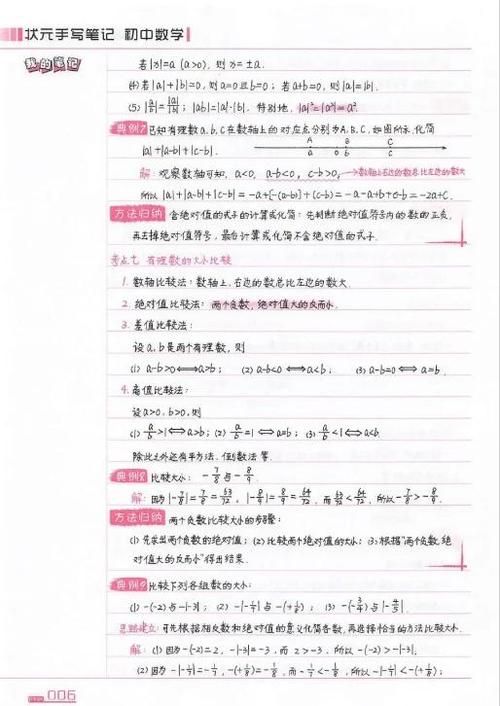 状元手写笔记 初中数学
我的笔记
若|x|=a (a>0), 则 x=±a.
(4)若|a|+|b|=0, 则a=0且b=0; 若a+b=0, 则|a|=|b|.
(5) |a/b|=|a|/|b|; |ab|=|a|·|b|. 特别地, |a|²=|a²|=a².
典例7 已知有理数a,b,c在数轴上的对应点分别为A,B,C,如图所示,化简
|a|+|a-b|+|c-b|.
A B C
a 0 b c
解: 观察数轴可知, a<0, a-b<0, c-b>0, →数轴上右边的数总比左边的数大
所以|a|+|a-b|+|c-b|=-a+[-(a-b)]+(c-b)=-a-a+b+c-b=-2a+c.
方法归纳 含绝对值的式子的计算或化简: 先判断绝对值符号内的数的正负,
再去掉绝对值符号, 最后计算或化简不含绝对值的式子.
考点七 有理数的大小比较
1. 数轴比较法: 数轴上,右边的数总比左边的数大.
2. 绝对值比较法: 两个负数,绝对值大的反而小.
3. 差值比较法:
设a,b是两个有理数, 则
(1) a-b>0⟺a>b; (2) a-b<0⟺a<b; (3) a-b=0⟺a=b.
4. 商值比较法:
设a>0, b>0, 则
(1) a/b>1⟺a>b; (2) a/b=1⟺a=b; (3) a/b<1⟺a<b.
除此之外还有平方法、倒数法等.
典例8 比较大小: -7/8与-8/9.
解: 因为|-7/8|=7/8=63/72, |-8/9|=8/9=64/72, 而63/72<64/72, 所以-7/8>-8/9.
方法归纳 两个负数比较大小的步骤:
(1) 先求出两个负数的绝对值; (2) 比较两个绝对值的大小; (3) 根据“两个负数,绝
对值大的反而小”得出结果.
典例9 比较下列各组数的大小:
(1) -(-2)与-|-3|; (2) -|-1/7|与-(+1/8); (3) -(-3/4)与|-4/5|
思路建立: 可先根据相反数和绝对值的意义化简各数,再选择恰当的方法比较大小.
解: (1) 因为-(-2)=2, -|-3|=-3, 而2>-3, 所以-(-2)>-|-3|.
(2) 因为-|-1/7|=-1/7, -(+1/8)=-1/8, 而-1/7<-1/8, 所以-|-1/7|<-(+1/8);
006